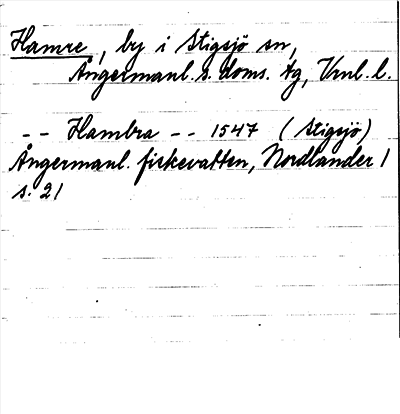 Hamre, by i Stigsjö sn,
Ångermanl. s. doms. tg, Vnl. l.
-- Hambra -- 1547 (Stigsjö)
Ångermanl. fiskevatten, Nordlander 1
s. 21